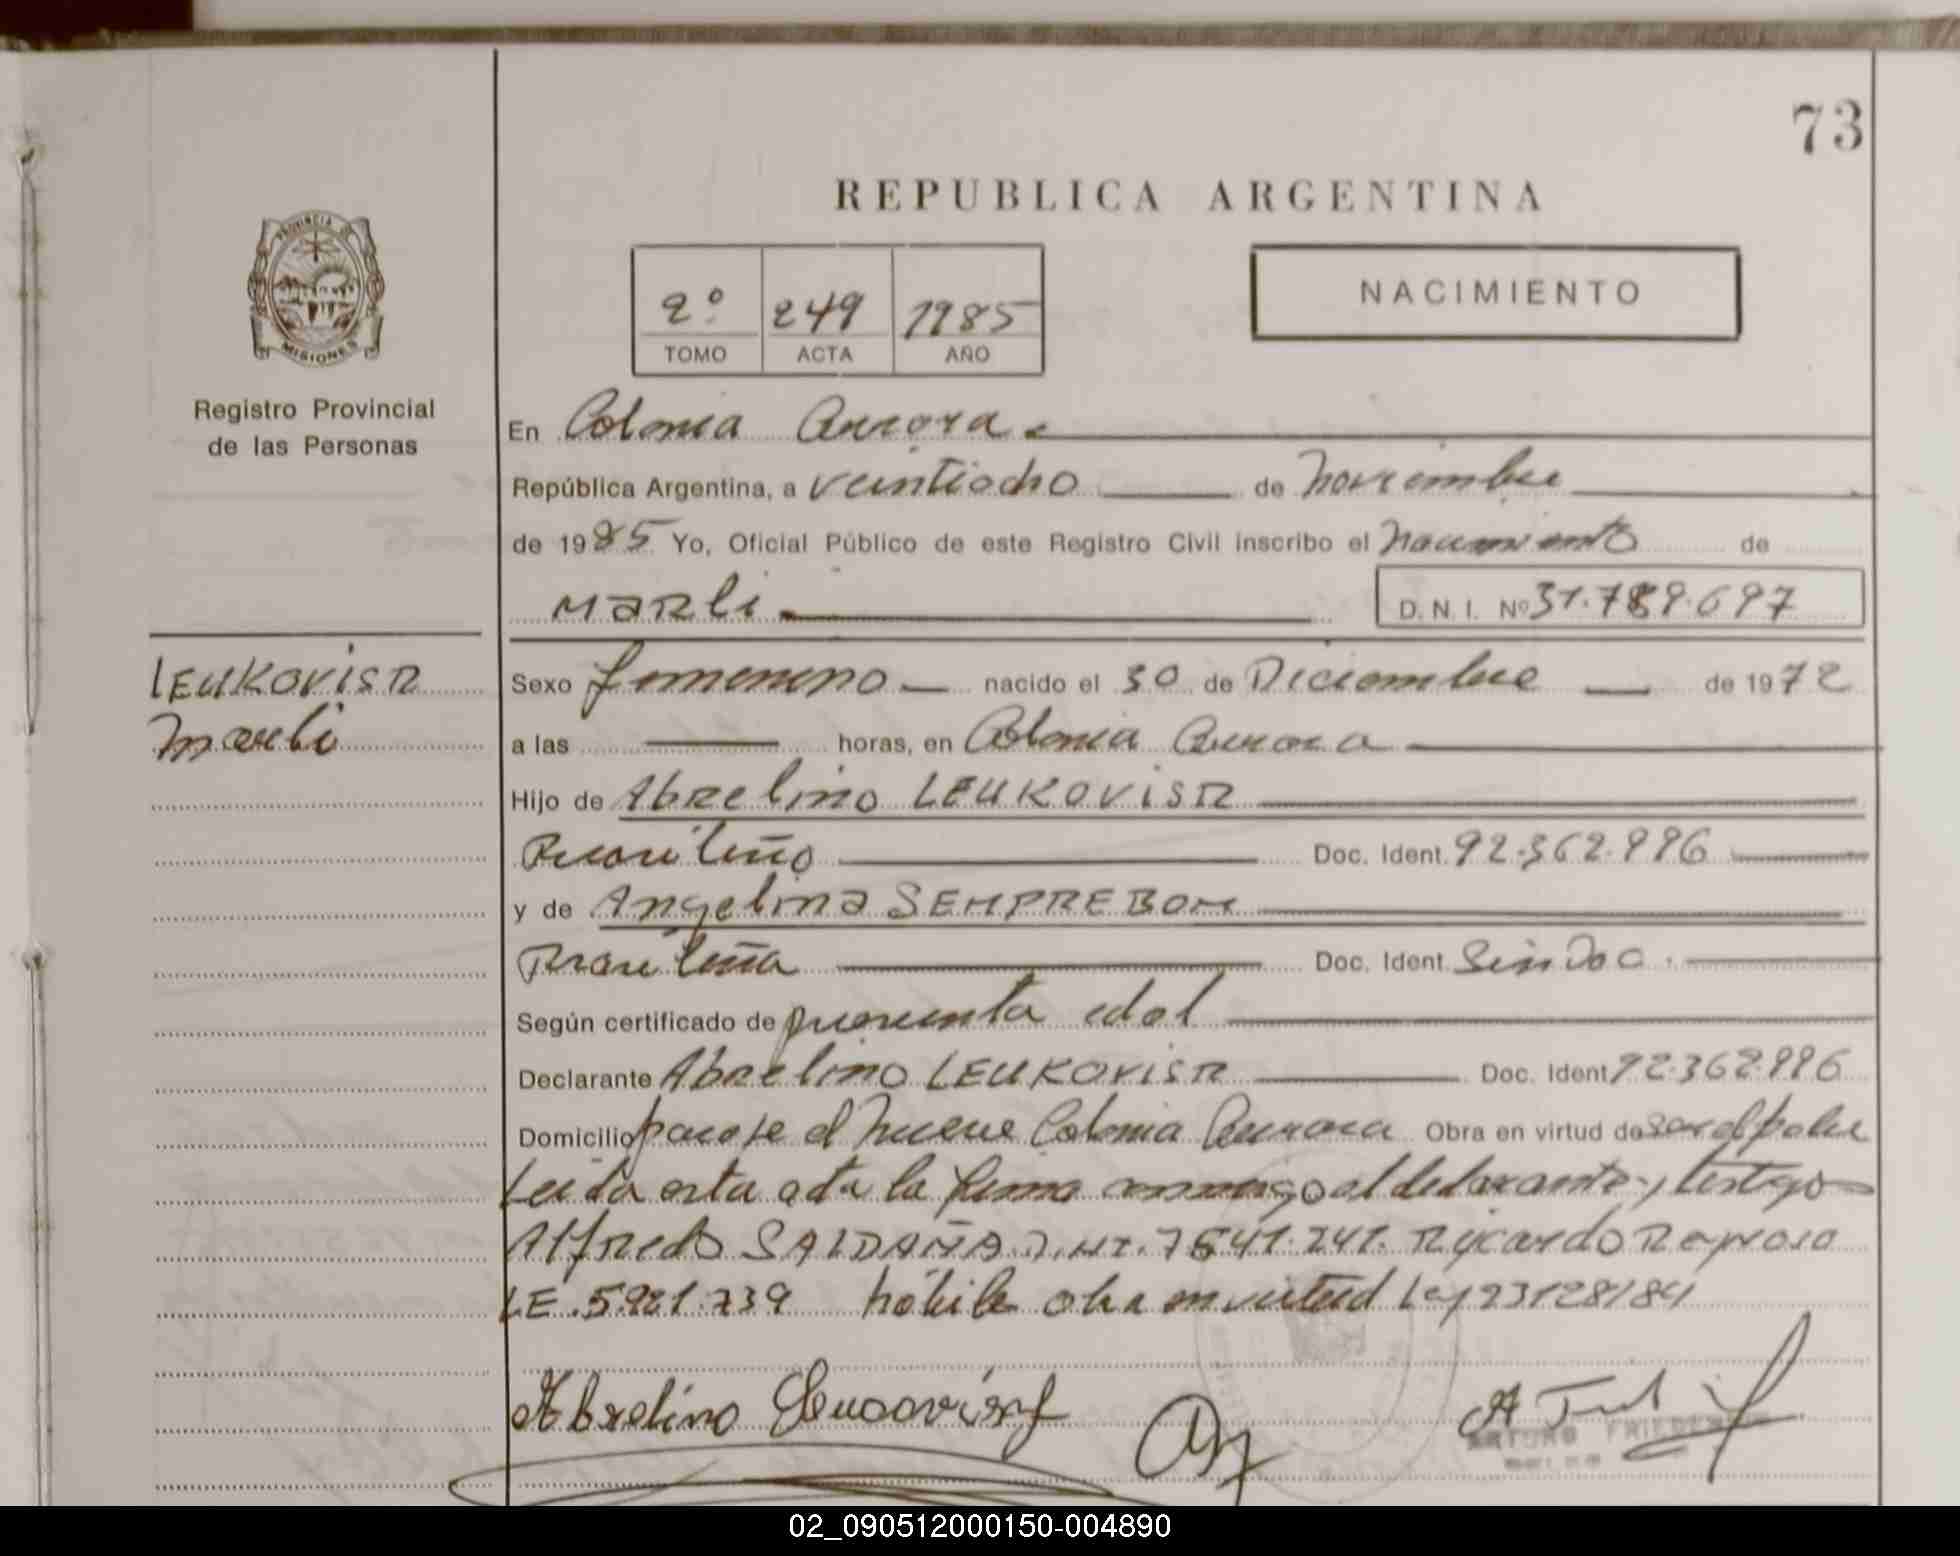 73
REPUBLICA ARGENTINA
PROVINCIA DE
MISIONES
2º 249 1985
TOMO ACTA AÑO
NACIMIENTO
Registro Provincial
de las Personas
En Colonia Aurora
República Argentina, a veintiocho de noviembre
de 1985 Yo, Oficial Público de este Registro Civil inscribo el nacimiento de
Marli D. N. I. Nº 31.789.697
LEUKOVISR
Marli
Sexo femenino nacido el 30 de Diciembre de 1972
a las horas, en Colonia Aurora
Hijo de Abrelino LEUKOVISR
Brasileño Doc. Ident. 92.362.996
y de Angelina SEMPREBOM
Brasileña Doc. Ident. Sin Doc.
Según certificado de presunta edad
Declarante Abrelino LEUKOVISR Doc. Ident. 92.362.996
Domicilio paraje el nueve Colonia Aurora Obra en virtud de ser el padre
Leida esta acta la firma conmigo el declarante y testigo
Alfredo SALDAÑA D.N.I. 7.641.241. Ricardo Reynoso
LE. 5.921.739 hábile obra en virtud Ley 23128/84
Abrelino
ARTURO
02_090512000150-004890